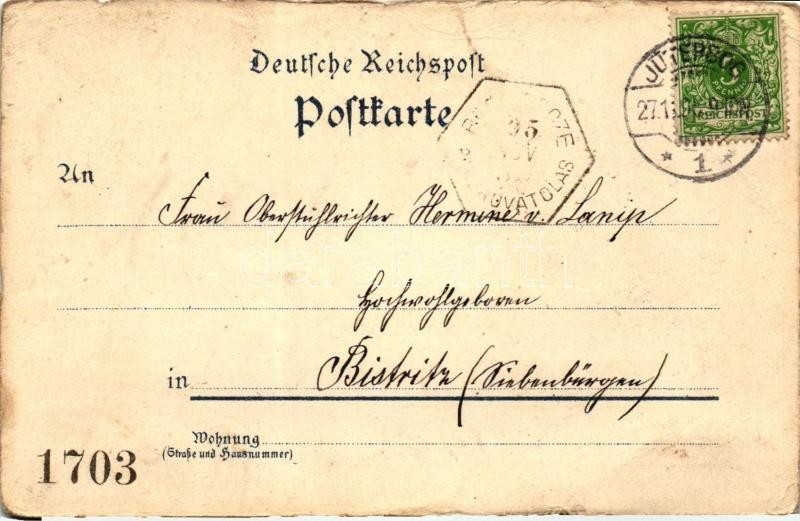 Deutsche Reichspost
Postkarte
JÜTERBOG
27.11.
1
5
PFENNIG
REICHSPOST
95
An
Frau Oberstuhlrichter Hermine v. Lanip
Hochwohlgeboren
in Bistritz (Siebenbürgen)
Wohnung
(Straße und Hausnummer)
1703
darabanth